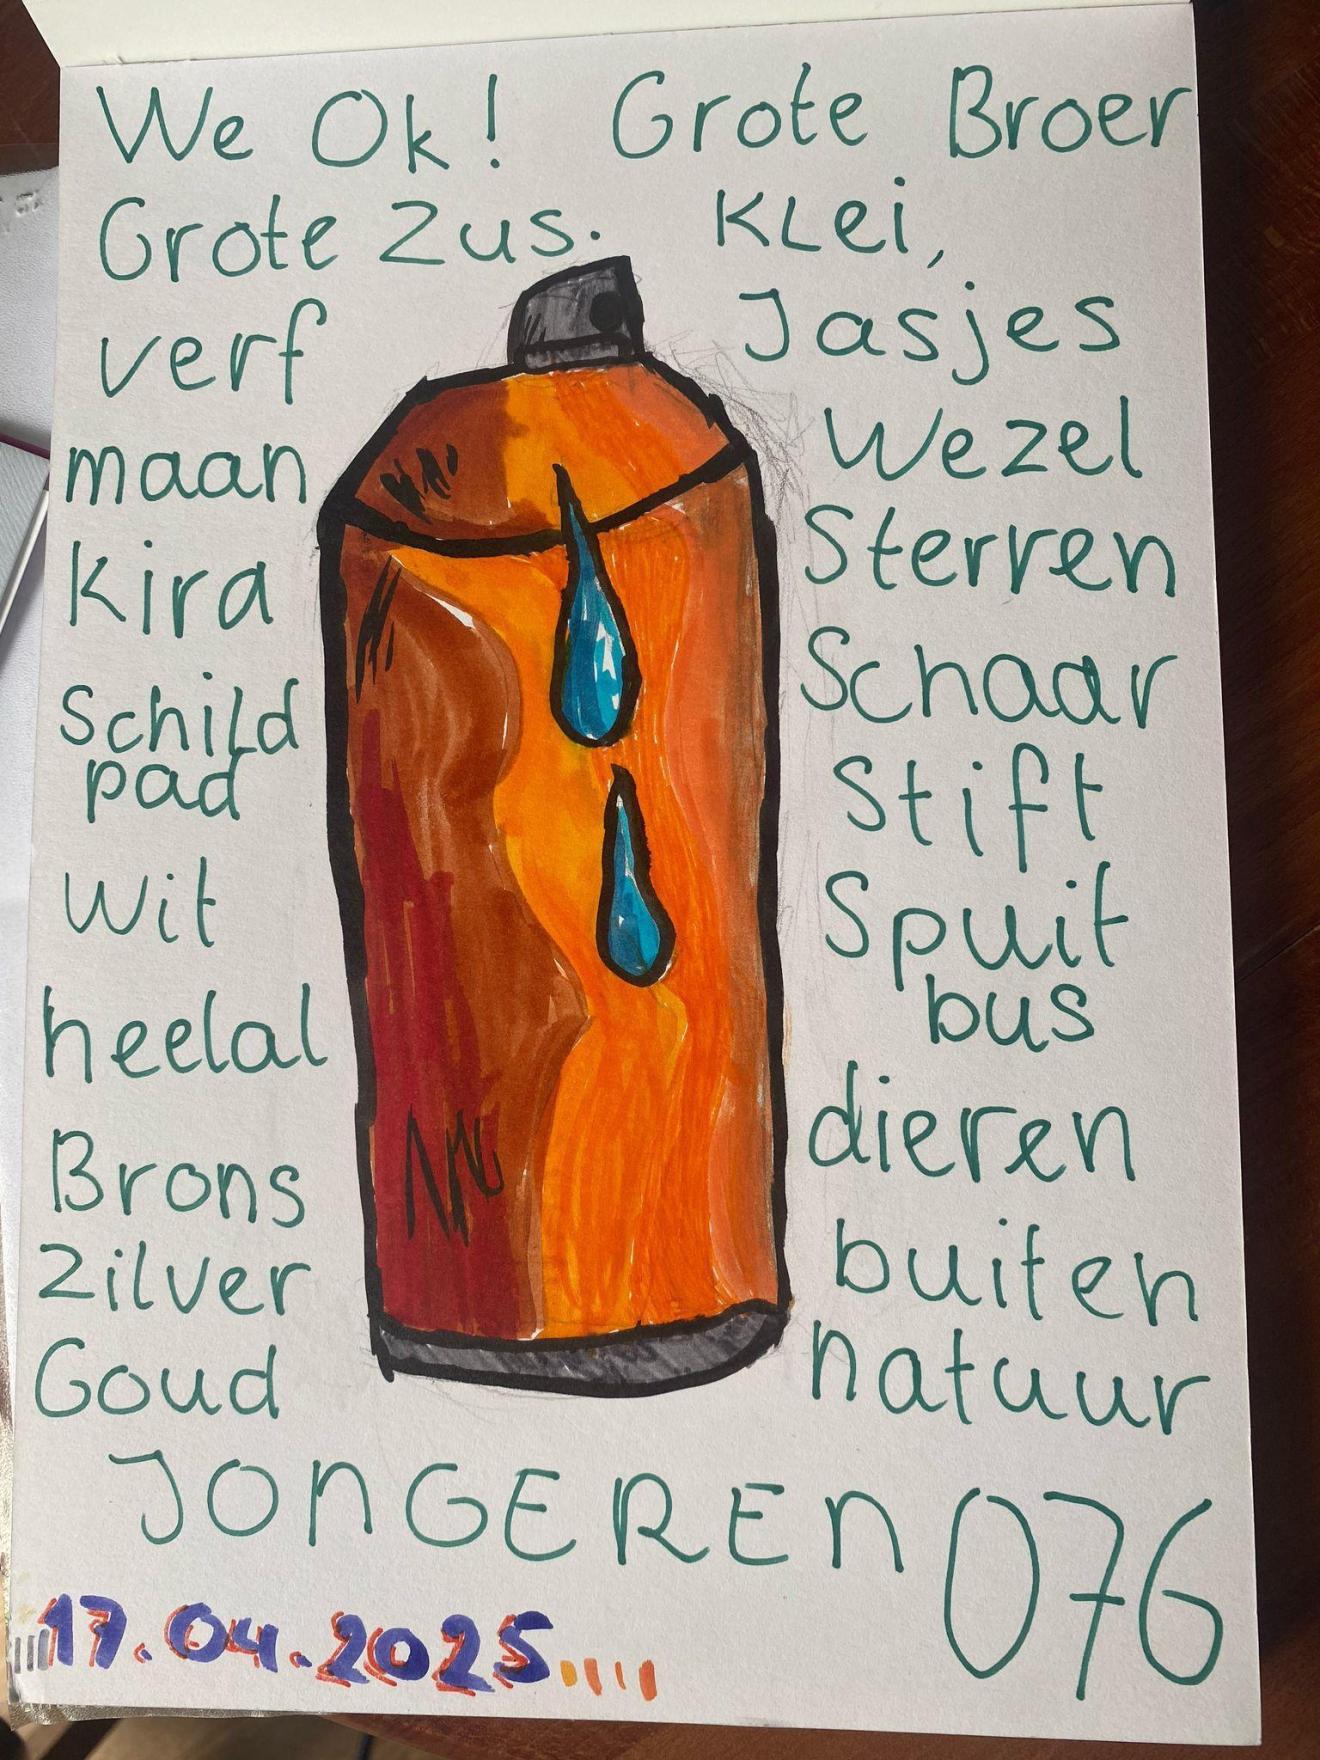 We Ok! Grote Broer
Grote Zus. KLei,
verf
Jasjes
maan
Wezel
Kira
Sterren
Schild
pad
Schaar
Stift
Wit
Spuit
bus
heelal
dieren
Brons
Zilver
buiten
Goud
natuur
JONGEREN 076
17.04.2025